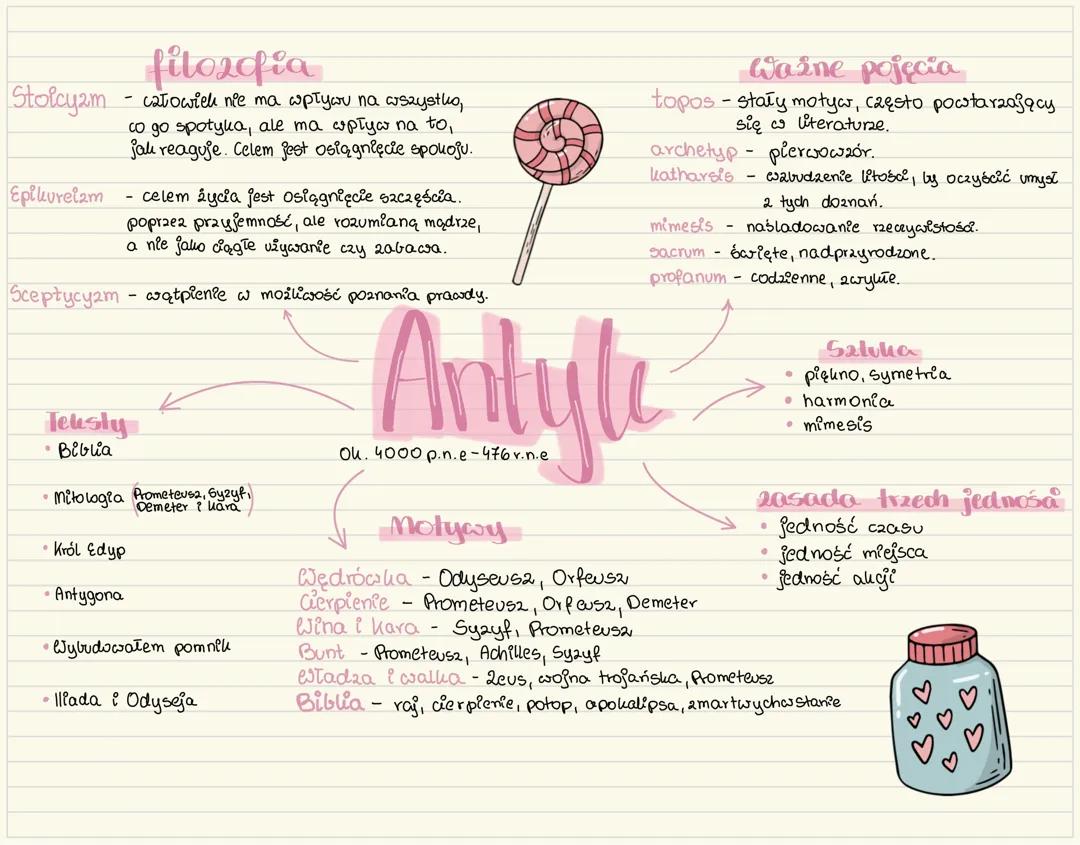 filozofia
Stoicyzm - człowiek nie ma wpływu na wszystko,
co go spotyka, ale ma wpływ na to,
jak reaguje. Celem jest osiągnięcie spokoju.
Epikureizm - celem życia jest osiągnięcie szczęścia.
poprzez przyjemność, ale rozumianą mądrze,
a nie jako ciągłe używanie czy zabawa.
Sceptycyzm - wątpienie w możliwość poznania prawdy.
Ważne pojęcia
topos - stały motyw, często powtarzający
się w literaturze.
archetyp - pierwowzór.
katharsis - wzbudzenie litości, by oczyścić umysł
z tych doznań.
mimesis - naśladowanie rzeczywistości.
sacrum - święte, nadprzyrodzone.
profanum - codzienne, zwykłe.
Antyk
Ok. 4000 p.n.e - 476 r.n.e
Sztuka
• piękno, symetria
• harmonia
• mimesis
Teksty
• Biblia
• Mitologia (Prometeusz, Syzyf,
Demeter i kara)
• Król Edyp
• Antygona
• Wybudowałem pomnik
• Iliada i Odyseja
Motywy
Wędrówka - Odyseusz, Orfeusz
Cierpienie - Prometeusz, Orfeusz, Demeter
Wina i kara - Syzyf, Prometeusz
Bunt - Prometeusz, Achilles, Syzyf
Władza i walka - Zeus, wojna trojańska, Prometeusz
Biblia - raj, cierpienie, potop, apokalipsa, zmartwychwstanie
zasada trzech jedności
• jedność czasu
• jedność miejsca
• jedność akcji